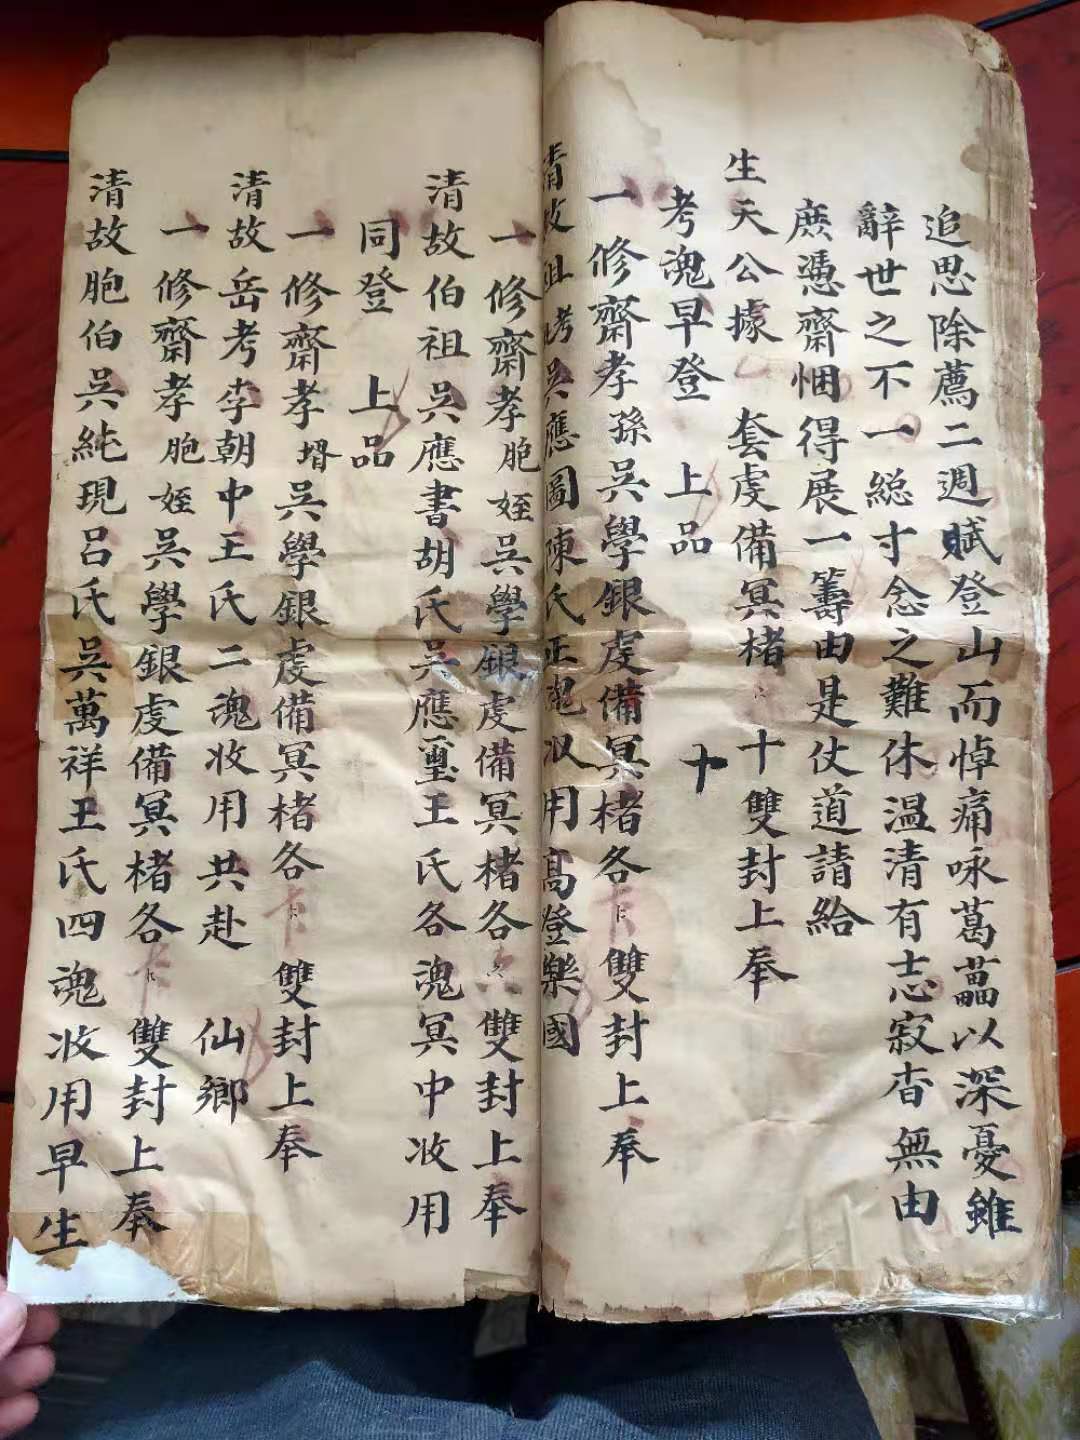 追思除薦二週賦登山而悼痛咏葛藟以深憂雖
辭世之不一総寸念之難休温清有志寂杳無由
庶憑齋悃得展一籌由是仗道請給
生天公據 套虔備冥楮 十雙封上奉
考魂早登 上品 十
一修齋孝孫吳學銀虔備冥楮各卡雙封上奉
清故祖考吳應圖陳氏正魂收用高登樂國
一修齋孝胞姪吳學銀虔備冥楮各 雙封上奉
清故伯祖吳應書胡氏吳應璽王氏各魂冥中收用
同登 上品
一修齋孝壻吳學銀虔備冥楮各卡雙封上奉
清故岳考李朝中王氏二魂收用共赴 仙鄉
一修齋孝胞姪吳學銀虔備冥楮各卡雙封上奉
清故胞伯吳純現呂氏吳萬祥王氏四魂收用早生